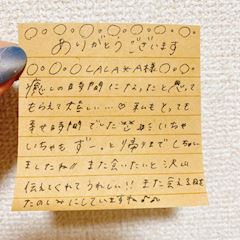 ありがとうございます
LALA*A様
癒しの時間になったと思って
もらえて大変嬉しい…♡私もとっても
幸せ時間でした いちゃ
いちゃもずーっと帰りまでしちゃい
ましたね!!また会いたいと沢山
伝えてくれてうれしい!!また会える日を
たのしみにしていますね♪♪